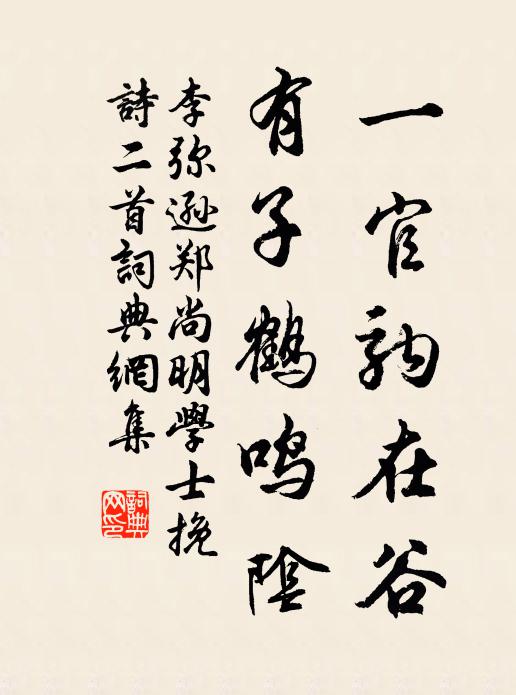 一官駒在谷
有子鶴鸣陰
李弥遜郑尚明學士挽
詩二首詞典網集
詞典
网印